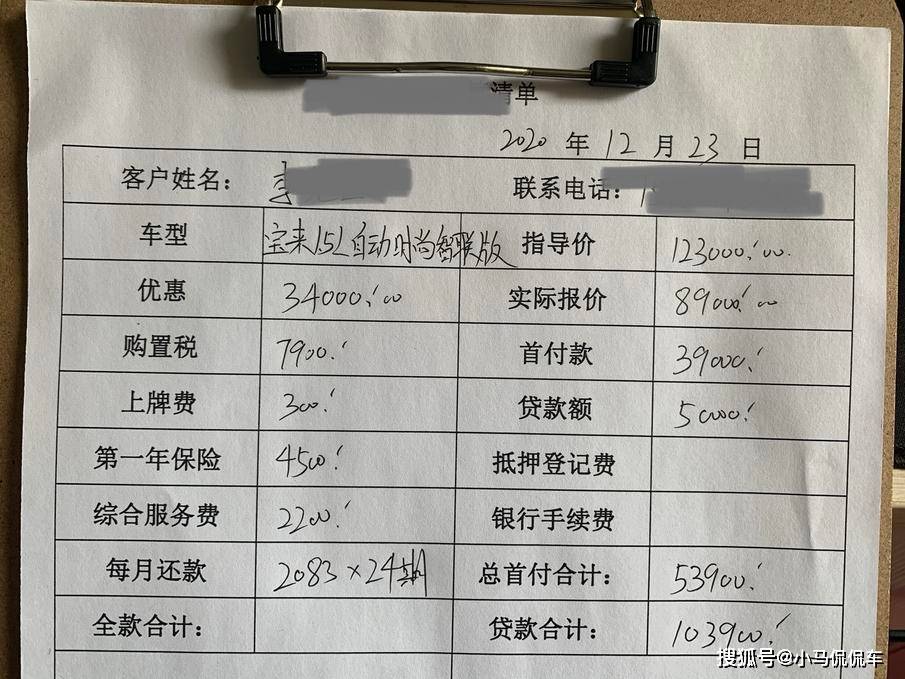 清单
2020 年 12 月 23 日
客户姓名: 联系电话:
车型 宝来1.5L自动时尚智联版 指导价 123000.00
优惠 34000.00 实际报价 89000.00
购置税 7900. 首付款 39000.
上牌费 300. 贷款额 50000.
第一年保险 4500. 抵押登记费
综合服务费 2200. 银行手续费
每月还款 2083×24期 总首付合计: 53900.
全款合计: 贷款合计: 103900.
搜狐号@小马侃侃车